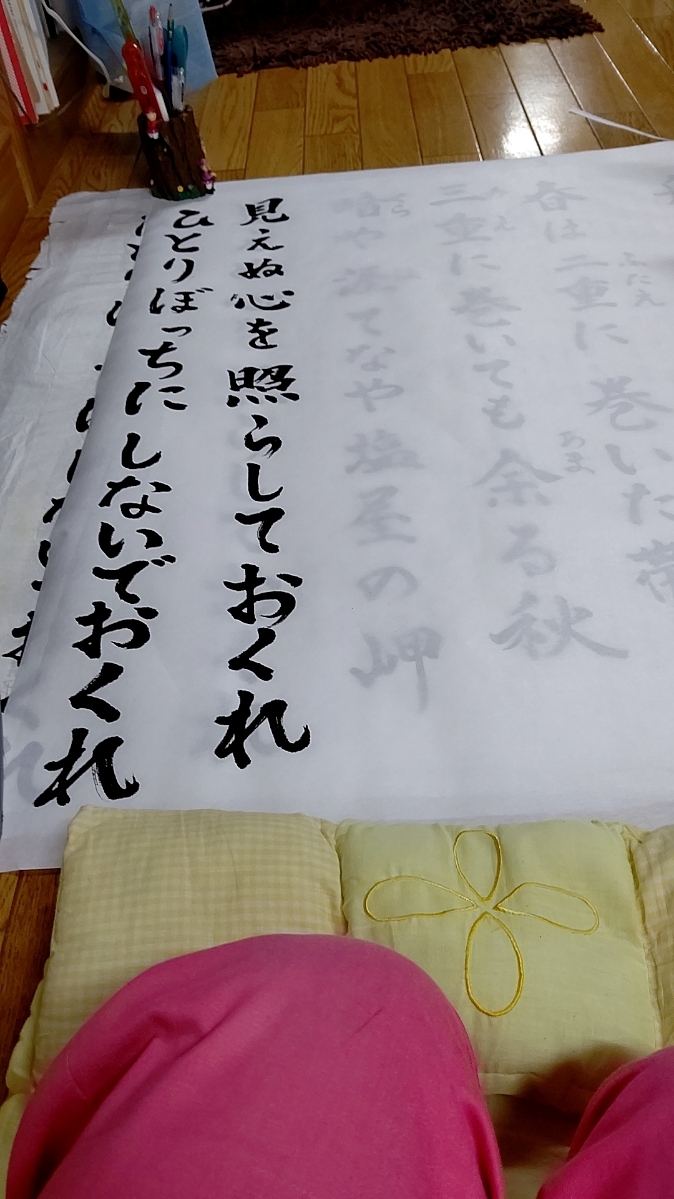 春は二重に巻いた帯
ふたえ
三重に巻いても余る秋
あま
暗や涯てなや塩屋の岬
見えぬ心を照らしておくれ
ひとりぼっちにしないでおくれ